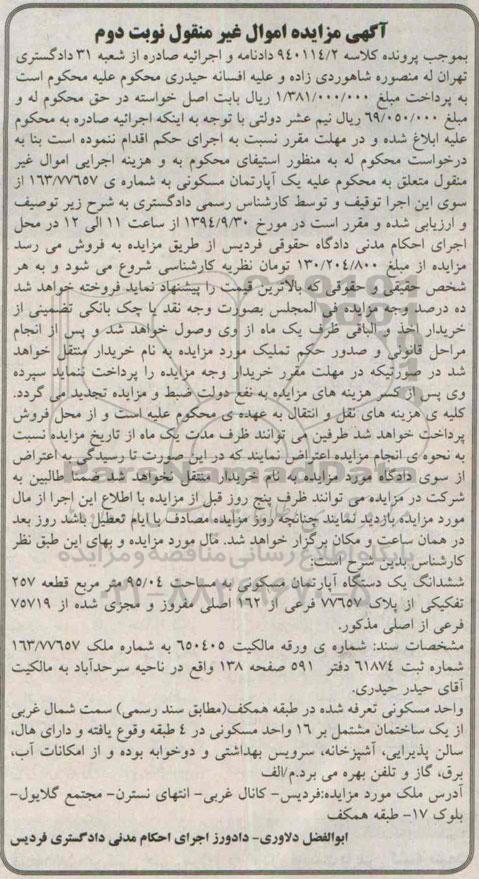 آگهی مزایده اموال غیر منقول نوبت دوم
بموجب پرونده کلاسه ۹۴۰۱۱۴/۲ دادنامه و اجرائیه صادره از شعبه ۳۱ دادگستری
تهران له منصوره شاهوردی زاده و علیه افسانه حیدری محکوم علیه محکوم است
به پرداخت مبلغ ۱/۳۸۱/۰۰۰/۰۰۰ ریال بابت اصل خواسته در حق محکوم له و
مبلغ ۶۹/۰۵۰/۰۰۰ ریال نیم عشر دولتی با توجه به اینکه اجرائیه صادره به محکوم
علیه ابلاغ شده و در مهلت مقرر نسبت به اجرای حکم اقدام ننموده است بنا به
درخواست محکوم له به منظور استیفای محکوم به و هزینه اجرایی اموال غیر
منقول متعلق به محکوم علیه یک آپارتمان مسکونی به شماره ی ۱۶۳/۷۷۶۵۷ از
سوی این اجرا توقیف و توسط کارشناس رسمی دادگستری به شرح زیر توصیف
و ارزیابی شده و مقرر است در مورخ ۱۳۹۴/۹/۳۰ از ساعت ۱۱ الی ۱۲ در محل
اجرای احکام مدنی دادگاه حقوقی فردیس از طریق مزایده به فروش می رسد
مزایده از مبلغ ۱۳۰/۲۰۴/۸۰۰ تومان نظریه کارشناسی شروع می شود و به هر
شخص حقیقی و حقوقی که بالاترین قیمت را پیشنهاد نماید فروخته خواهد شد
ده درصد وجه مزایده فی المجلس بصورت وجه نقد یا چک بانکی تضمینی از
خریدار اخذ و الباقی ظرف یک ماه از وی وصول خواهد شد و پس از انجام
مراحل قانونی و صدور حکم تملیک مورد مزایده به نام خریدار منتقل خواهد
شد در صورتیکه در مهلت مقرر خریدار وجه مزایده را پرداخت ننماید سپرده
وی پس از کسر هزینه های مزایده به نفع دولت ضبط و مزایده تجدید می گردد.
کلیه ی هزینه های نقل و انتقال به عهده ی محکوم علیه است و از محل فروش
پرداخت خواهد شد طرفین می توانند ظرف مدت یک ماه از تاریخ مزایده نسبت
به نحوه ی انجام مزایده اعتراض نمایند که در این صورت تا رسیدگی به اعتراض
از سوی دادگاه مورد مزایده به نام خریدار منتقل نخواهد شد ضمنا طالبین به
شرکت در مزایده می توانند ظرف پنج روز قبل از مزایده با اطلاع این اجرا از مال
مورد مزایده بازدید نمایند چنانچه روز مزایده مصادف با ایام تعطیل باشد روز بعد
در همان ساعت و مکان برگزار خواهد شد. مال مورد مزایده و بهای این طبق نظر
کارشناس بدین شرح است:
ششدانگ یک دستگاه آپارتمان مسکونی به مساحت ۹۵/۰۴ متر مربع قطعه ۲۵۷
تفکیکی از پلاک ۷۷۶۵۷ فرعی از ۱۶۲ اصلی مفروز و مجزی شده از ۷۵۷۱۹
فرعی از اصلی مذکور.
مشخصات سند: شماره ی ورقه مالکیت ۶۵۰۴۰۵ به شماره ملک ۱۶۳/۷۷۶۵۷
شماره ثبت ۶۱۸۷۴ دفتر ۵۹۱ صفحه ۱۳۸ واقع در ناحیه سرحدآباد به مالکیت
آقای حیدر حیدری.
واحد مسکونی تعرفه شده در طبقه همکف(مطابق سند رسمی) سمت شمال غربی
از یک ساختمان مشتمل بر ۱۶ واحد مسکونی در ۴ طبقه وقوع یافته و دارای هال،
سالن پذیرایی، آشپزخانه، سرویس بهداشتی و دوخوابه بوده و از امکانات آب،
برق، گاز و تلفن بهره می برد.م/الف
آدرس ملک مورد مزایده:فردیس- کانال غربی- انتهای نسترن- مجتمع گلایول-
بلوک ۱۷- طبقه همکف
ابوالفضل دلاوری- دادورز اجرای احکام مدنی دادگستری فردیس
ParsNamadData
پایگاه اطلاع رسانی مناقصه و مزایده
۰۲۱-۸۸۳۴۹۶۷۰-۵